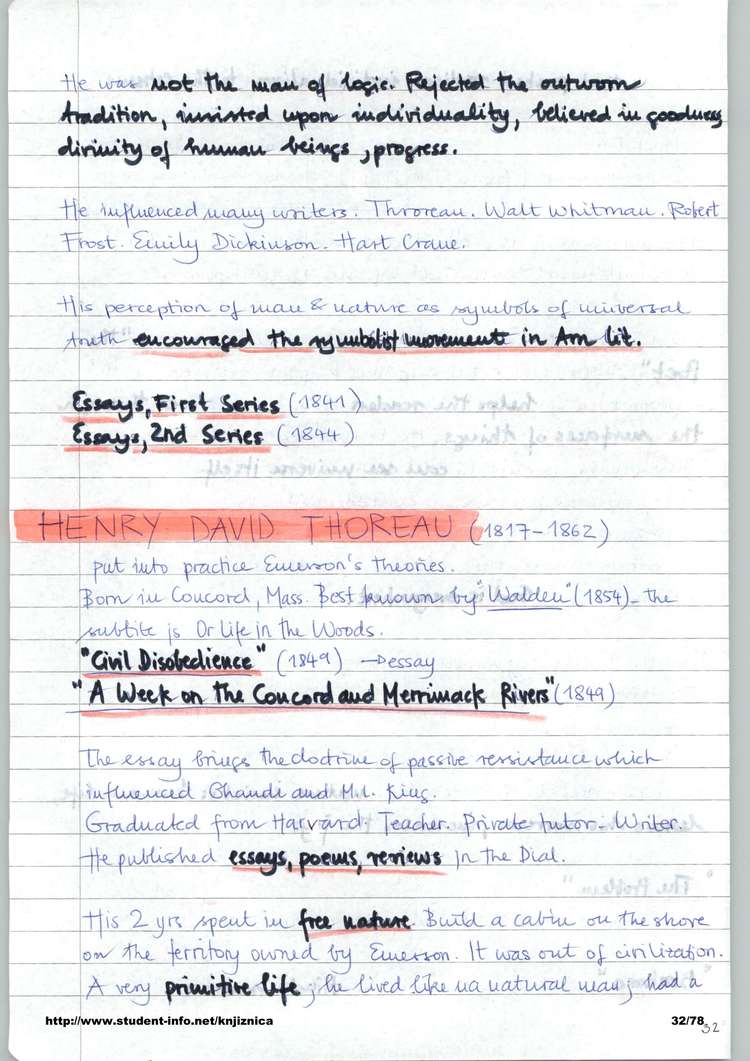 He was not the man of logic. Rejected the outworn
tradition, insisted upon individuality, believed in goodness
divinity of human beings, progress.
He influenced many writers. Throreau. Walt Whitman. Robert
Frost. Emily Dickinson. Hart Crane.
His perception of man & nature as symbols of universal
truth encouraged the symbolist movement in Am lit.
Essays, First Series (1841)
Essays, 2nd Series (1844)
HENRY DAVID THOREAU (1817-1862)
put into practice Emerson's theories.
Born in Concord, Mass. Best known by "Walden" (1854) - the
subtitle is Or Life in the Woods.
"Civil Disobedience" (1849) → essay
"A Week on the Concord and Merrimack Rivers" (1849)
The essay brings the doctrine of passive ressistance which
influenced Ghandi and M.L. King.
Graduated from Harvard. Teacher. Private tutor. Writer.
He published essays, poems, reviews in the Dial.
His 2 yrs spent in free nature. Build a cabin on the shore
on the territory owned by Emerson. It was out of civilization.
A very primitive life, he lived like na natural man, had a
http://www.student-info.net/knjiznica 32/78
32